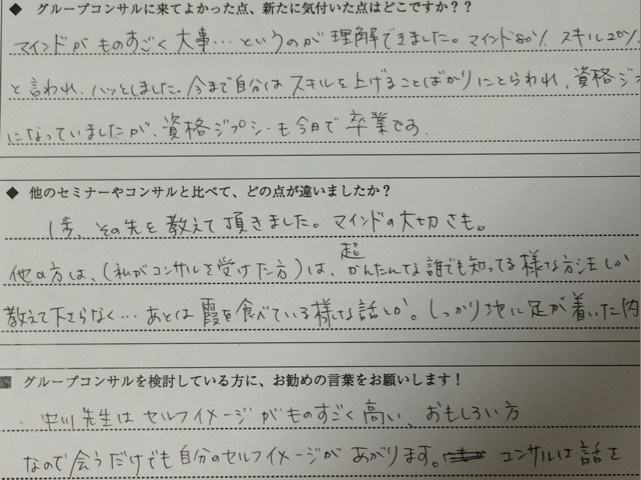 ◆ グループコンサルに来てよかった点、新たに気付いた点はどこですか？？
マインドがものすごく大事…というのが理解できました。マインド80% スキル20%
と言われ、ハッとしました。今まで自分はスキルを上げることばかりにとらわれ、資格ジプ
になっていましたが、資格ジプシーも今日で卒業です。
◆ 他のセミナーやコンサルと比べて、どの点が違いましたか？
1歩、その先を教えて頂きました。マインドの大切さも。
他の方は、(私がコンサルを受けた方)は、超かんたんな誰でも知ってる様な方法しか
教えて下さらなく…あとは霞を食べている様な話とか。しっかり地に足が着いた内
■ グループコンサルを検討している方に、お勧めの言葉をお願いします！
・中川先生はセルフイメージがものすごく高い、おもしろい方
なので会うだけでも自分のセルフイメージがあがります。コンサルは話を